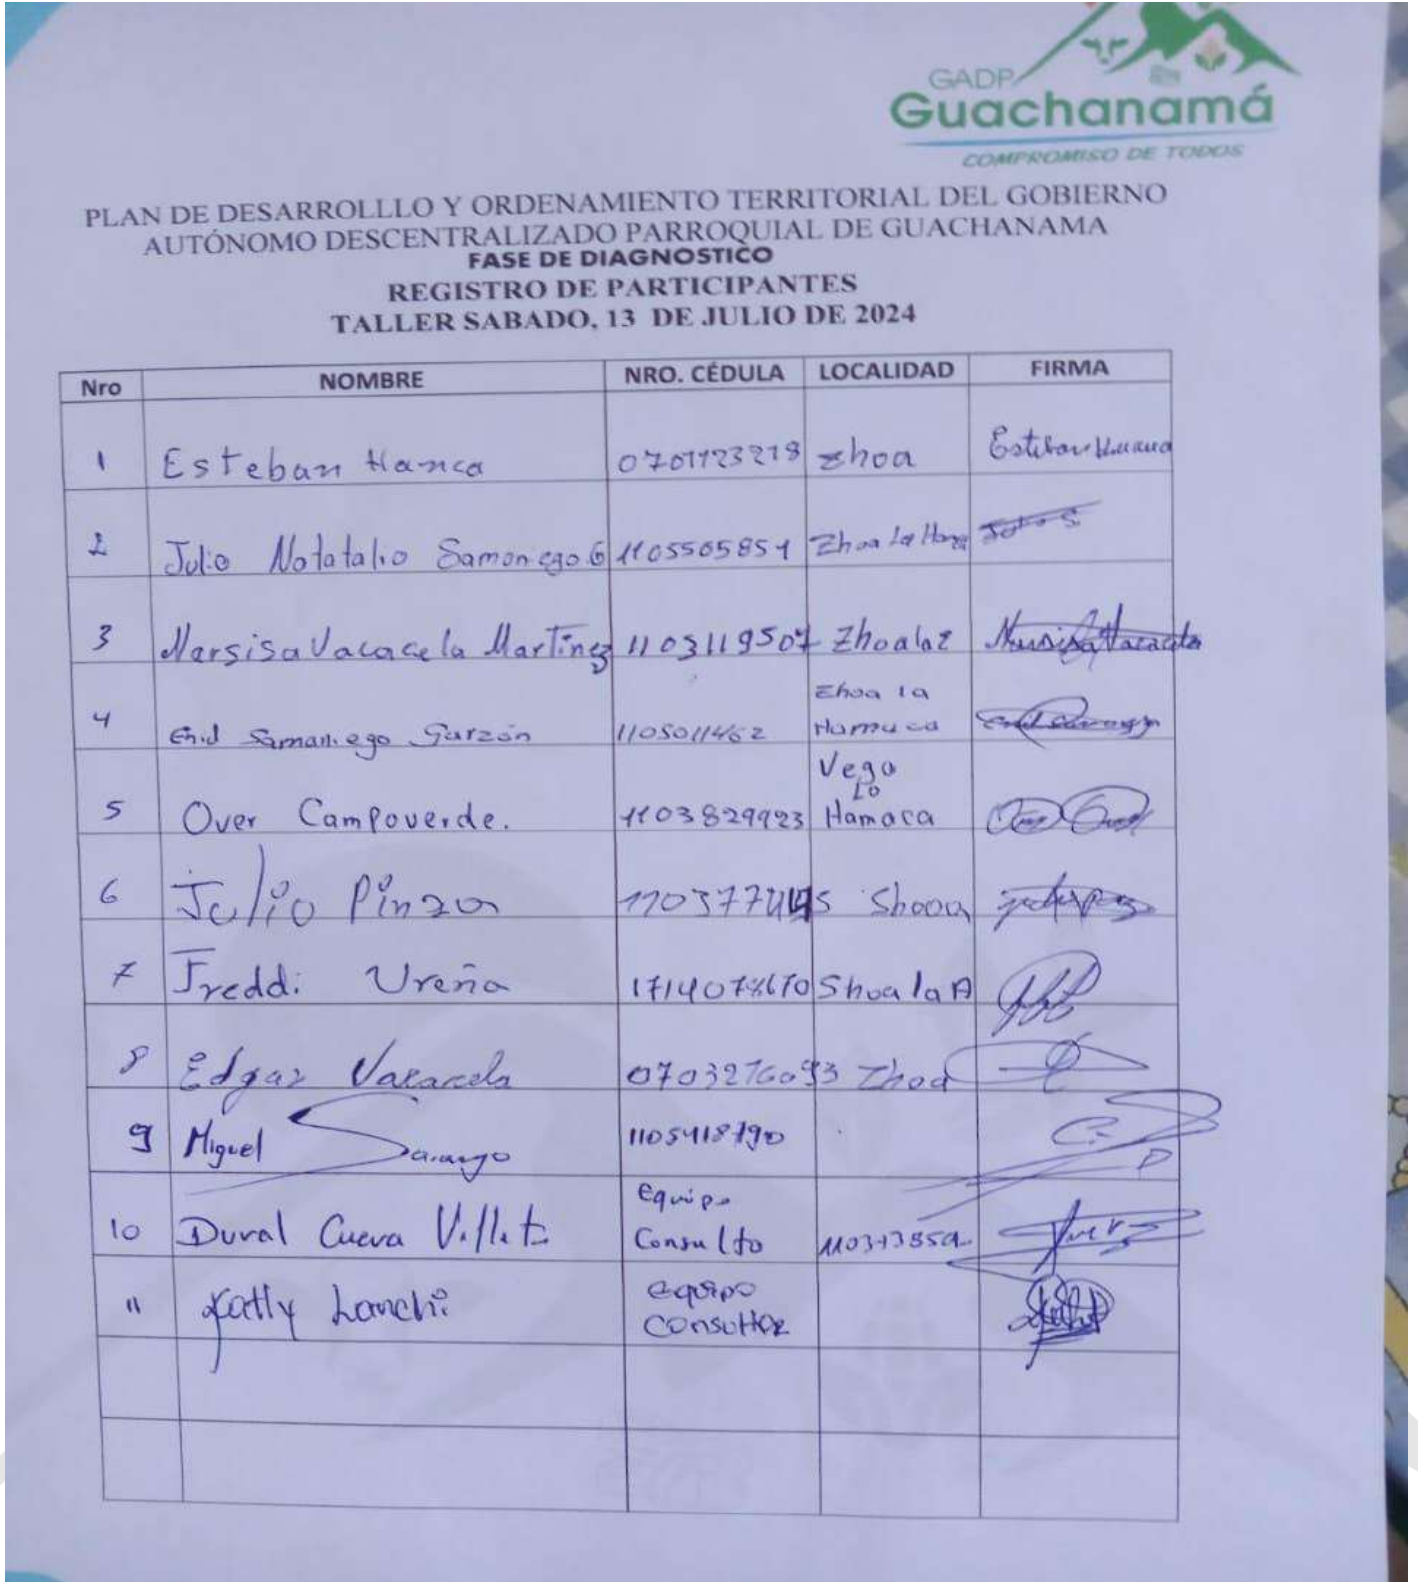 GADP
Guachanamá
COMPROMISO DE TODOS
PLAN DE DESARROLLLO Y ORDENAMIENTO TERRITORIAL DEL GOBIERNO
AUTÓNOMO DESCENTRALIZADO PARROQUIAL DE GUACHANAMA
FASE DE DIAGNOSTICO
REGISTRO DE PARTICIPANTES
TALLER SABADO, 13 DE JULIO DE 2024
Nro NOMBRE NRO. CÉDULA LOCALIDAD FIRMA
1 Esteban Hanca 0701123218 zhoa Esteban
2 Julio Natatalio Samaniego G 1105505851 Zhoa La
3 Narsisa Vacacela Martinez 1103119507 Zhoalaz Narsisa Vacacela
4 Enid Samaniego Garzón 1105011462 Zhoa la Hamuca
5 Over Campoverde. 1103829923 Vega La Hamaca
6 Julio Pinzon Shooa
7 Freddi Ureña Shoa la A
8 Edgar Vacacela 0703276093 Zhoa
9 Miguel Sarango 1105418790
10 Duval Cueva equipo Consulto
11 Katty Lanchi equipo consultor